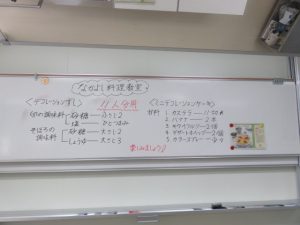 なかよし料理教室
11人分用
<デコレーションずし>
卵の調味料 砂糖 小さじ2
塩 ひとつまみ
そぼろの調味料 砂糖 大さじ2
しょうゆ 大さじ3
<ミニデコレーションケーキ>
材料
1. カステラ
2. バナナ 2本
3. キウイフルーツ 2個
4. デザートホイップ 2個
5. カラースプレー 少々
楽しみましょう♪